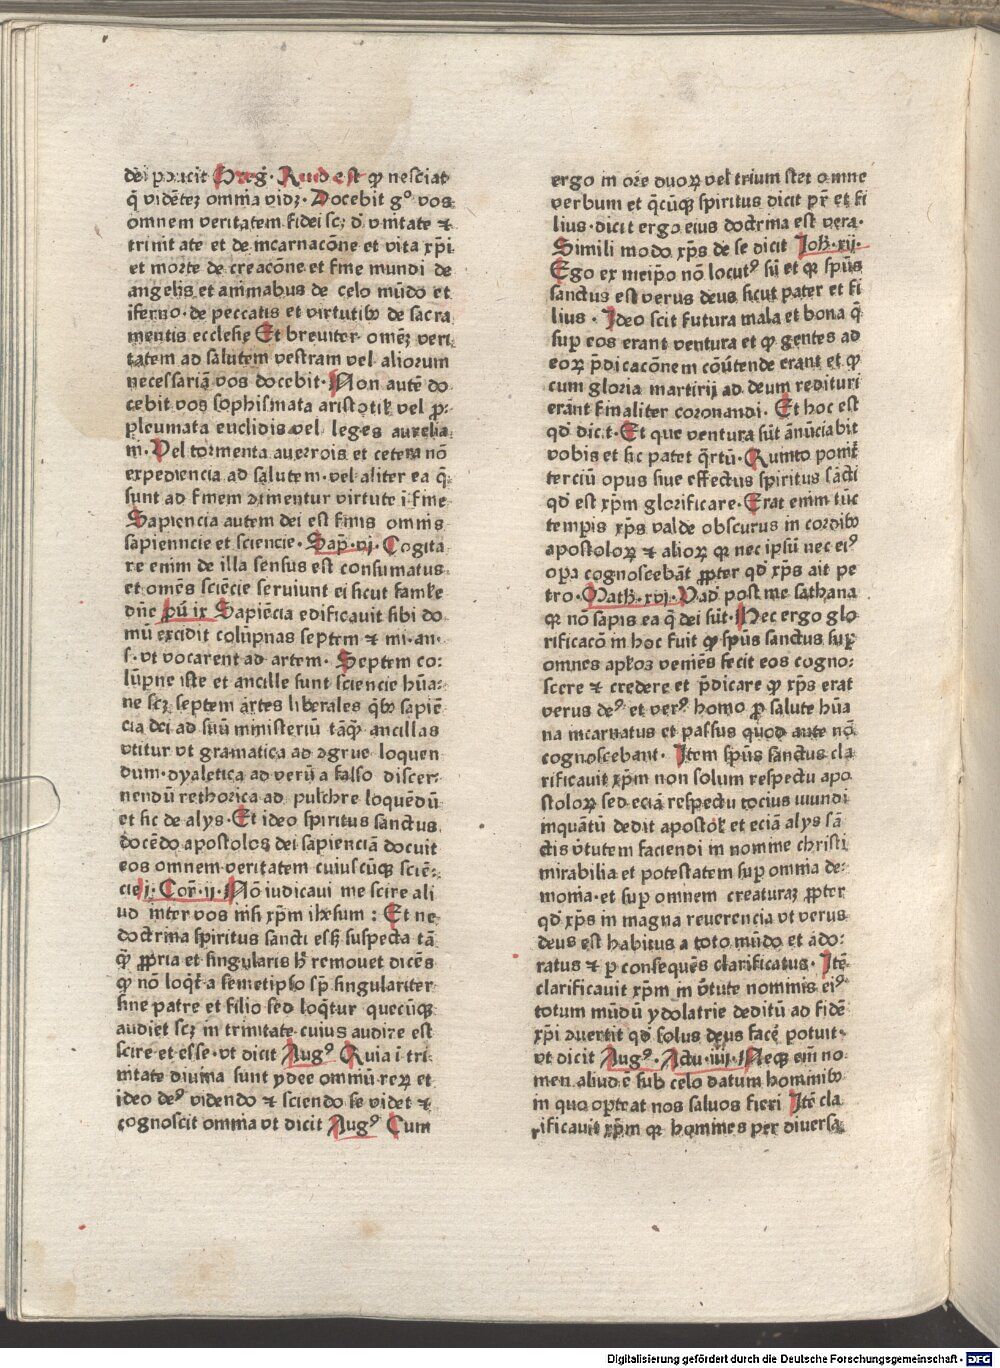 dei ponicit Greg̃. Quid est ꝙ nesciat
q̃ vidẽteꝫ omnia vidꝫ. Docebit gᵒ vos
omnem veritatem fidei scꝫ d̃ vnitate ⁊
trinit ate et de incarnacõne et vita xp̃i
et morte de creacõne et fine mundi de
angelis et animabus de celo mũdo et
iferno. de peccatis et virtutibꝫ de sacra
mentis ecclesie Et breuiter omẽꝫ veri
tatem ad salutem vestram vel aliorum
necessariã vos docebit. Non autẽ do
cebit vos sophismata aristotiꝉ vel ꝓ:
pleumata euclidis vel leges aurelia:
ni. Vel tormenta auerrois et cetera nõ
expediencia ad salutem. vel aliter ea q̃:
sunt ad finem dimentur virtute i fine
Sapiencia autem dei est finis omnis
sapienncie et sciencie. Sap̃. vi. Cogita
re enim de illa sensus est consumatus
et omẽs sciẽcie seruiunt ei sicut famĩe
dñe p̃ũ ix Sapiẽcia edificauit sibi do
mũ excidit colũpnas septem ⁊ mi. an.
s. vt vocarent ad artem. Septem co:
lũpne iste et ancille sunt sciencie hũa:
ne scꝫ septem artes liberales q̃bꝫ sapiẽ
cia dei ad suũ ministeriũ tãꝙ̃ ancillas
vtitur vt gramatica ad ꝯgrue loquen
dum. dyaletica ad verũ a falso discer:
nendũ rethorica ad pulchre loquẽdũ
et sic de alys. Et ideo spiritus sanctus
docẽdo apostolos dei sapienciã docuit
eos omnem veritatem cuiuscũqꝫ sciẽ:
cie i: Cor̃. ii. Nõ iudicaui me scire ali
ud inter vos nisi xp̃m ihesum : Et ne
doctrina spiritus sancti esꝫ suspecta tã
ꝙ̃ ꝓpria et singularis h̃ remouet dicẽs
ꝙ nõ loq̃t̃ a semetipso sꝫ singulariter
sine patre et filio sed loq̃tur quecũqꝫ
audiet scꝫ in trinitate cuius audire est
scire et esse. vt dicit Augꝰ Quia i tri:
nitate diuina sunt ydee omniũ reꝝ et
ideo deꝰ videndo ⁊ sciendo se videt ⁊
cognoscit omnia vt dicit Augꝰ Cum
ergo in ore duoꝝ vel trium stet omne
verbum et q̃cũqꝫ spiritus dicit pr̃ et fi
lius. dicit ergo eius doctrina est vera.
Simili modo xp̃s de se dicit Ioh̃. xij.
Ego ex meip̃o nõ locutꝰ sũ et qꝛ sp̃us
sanctus est verus deus sicut pater et fi
lius . Ideo scit futura mala et bona q̃
sup̃ eos erant ventura et ꝙ gentes ad
eoꝝ p̃dicacõnem cõũtende erant et ꝙ
cum gloria martirij ad deum redituri
erãnt finaliter coronandi. Et hoc est
qd̃ dic.t. Et que ventura sũt ãnũciabit
vobis et sic patet q̃rtũ. Quinto poniꝉ
terciũ opus siue effectus spiritus sãcti
qd̃ est xp̃m glorificare. Erat enim tũc
tempis xp̃s valde obscurus in cordibꝫ
apostoloꝝ ⁊ alioꝝ qꝛ nec ipsũ nec eiꝰ
op̃a cognoscebãt ꝓpter qd̃ xp̃s ait pe
tro. Math̃. xvi. Vad̃ post me sathana
qꝛ nõ sapis ea q̃ dei sũt. Hec ergo glo
rificacõ in hoc fuit ꝙ sp̃us sanctus sup̃
omnes ap̃los veniẽs fecit eos cogno:
scere ⁊ credere et p̃dicare ꝙ xp̃s erat
verus deꝰ et verꝰ homo ꝓ salute hũa
na incarnatus et passus quod ante nõ
cognoscebant. Item sp̃us sanctus cla
rificauit xp̃m non solum respectu apo
stoloꝝ sed eciã respectu tocius mundi
inquãtũ dedit apostoꝉ et eciã alys sã
ctis v̓tutem faciendi in nomine christi
mirabilia et potestatem sup omnia de:
monia. et sup omnem creaturaꝫ ꝓpter
qd̃ xp̃s in magna reuerencia vt verus
deus est habitus a toto mũdo et ado:
ratus ⁊ ꝑ consequẽs clarificatus. Itẽ
clarificauit xp̃m in v̓tute nominis eiꝰ
totum mũdũ ydolatrie deditũ ad fidẽ
xp̃i ꝯuertit qd̃ solus deus face᷑ potuit.
vt dicit Augꝰ. Actu. iiij. Neqꝫ eiñ no:
men aliud ẽ sub celo datum hominibꝫ
in quo oꝑteat nos saluos fieri Itẽ cla
rificauit xp̃m qꝛ homines per diuersa
Digitalisierung gefördert durch die Deutsche Forschungsgemeinschaft - DFG